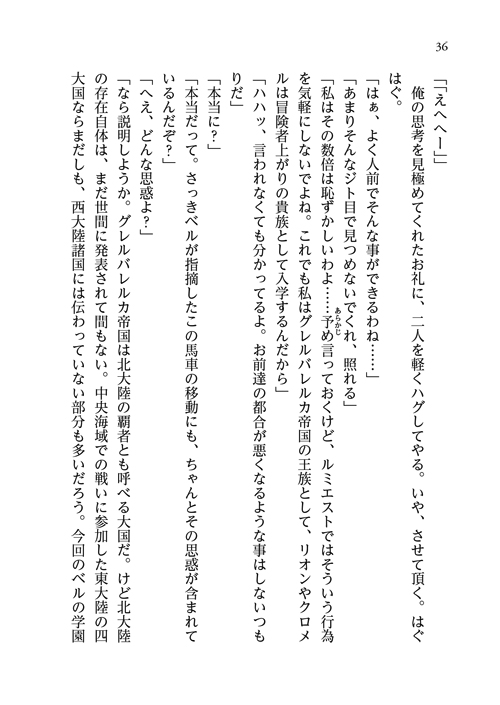 36
「「えへへー」」
　俺の思考を見極めてくれたお礼に、二人を軽くハグしてやる。いや、させて頂く。はぐ
はぐ。
「はぁ、よく人前でそんな事ができるわね……」
「あまりそんなジト目で見つめないでくれ、照れる」
「私はその数倍は恥ずかしいわよ……予め言っておくけど、ルミエストではそういう行為
あらかじ
を気軽にしないでよね。これでも私はグレルバレルカ帝国の王族として、リオンやクロメ
ルは冒険者上がりの貴族として入学するんだから」
「ハハッ、言われなくても分かってるよ。お前達の都合が悪くなるような事はしないつも
りだ」
「本当に？」
「本当だって。さっきベルが指摘したこの馬車の移動にも、ちゃんとその思惑が含まれて
いるんだぞ？」
「へえ、どんな思惑よ？」
「なら説明しようか。グレルバレルカ帝国は北大陸の覇者とも呼べる大国だ。けど北大陸
の存在自体は、まだ世間に発表されて間もない。中央海域での戦いに参加した東大陸の四
大国ならまだしも、西大陸諸国には伝わっていない部分も多いだろう。今回のベルの学園